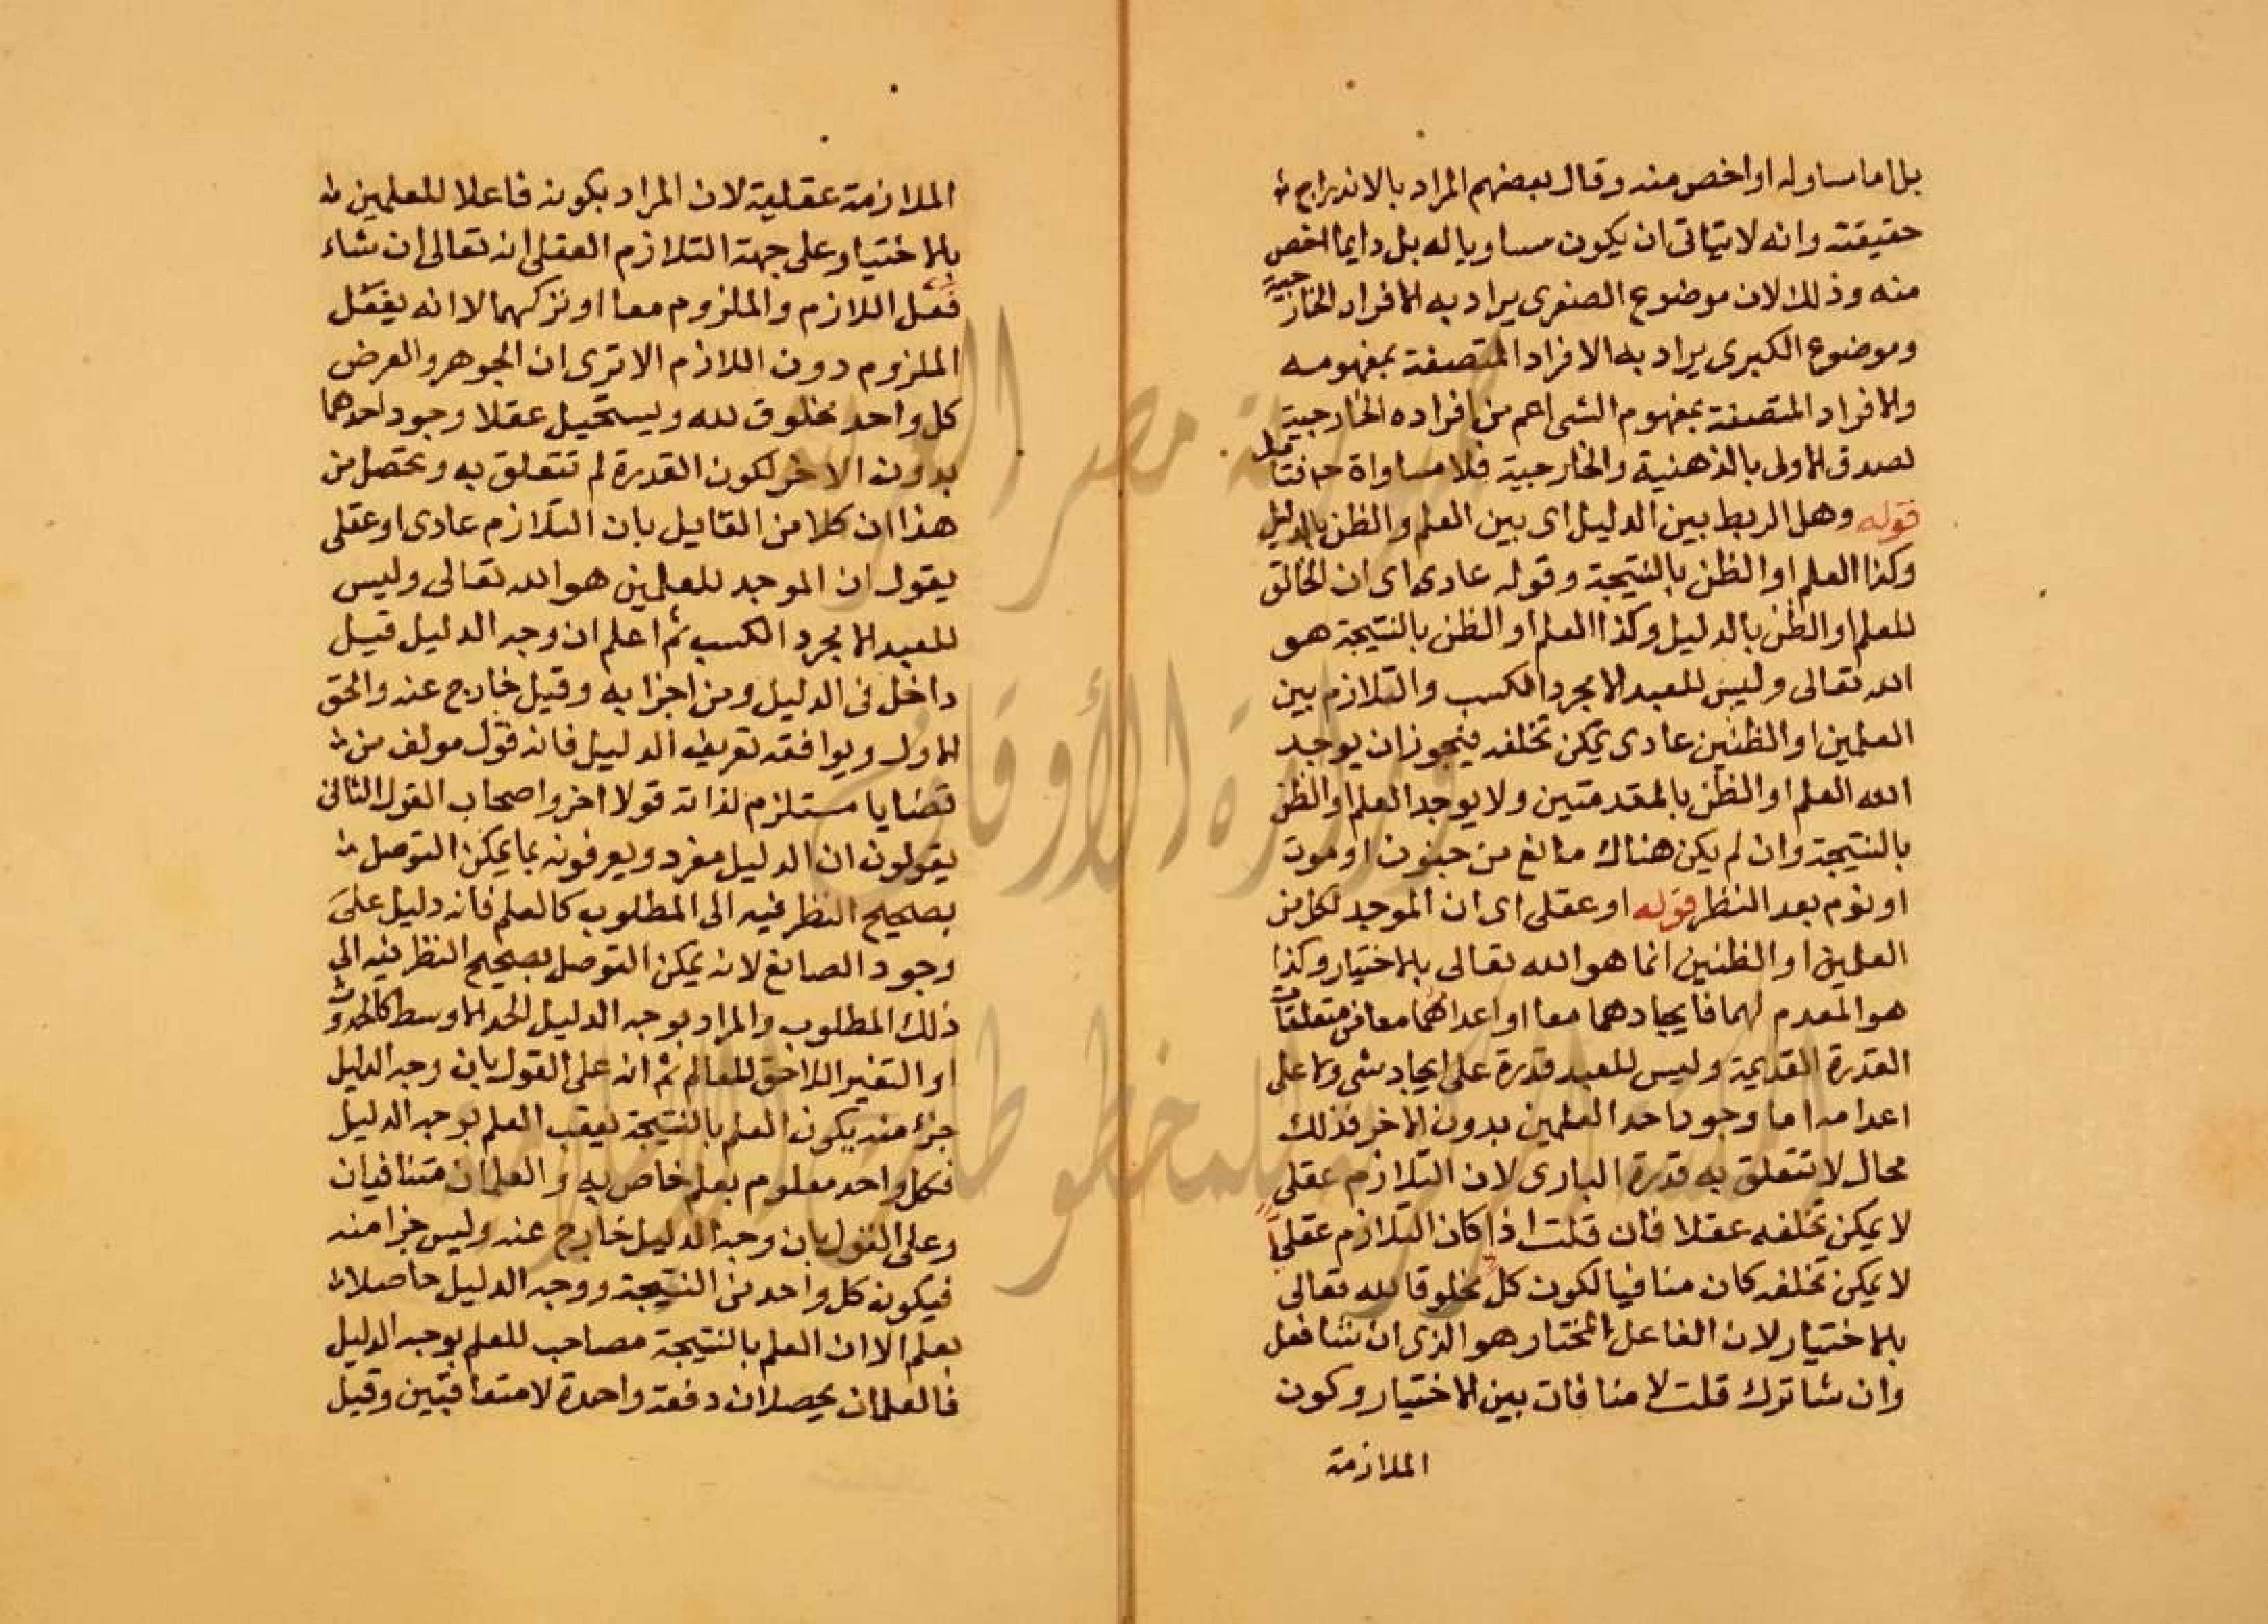 بل اما مساو له او اخص منه وقال بعضهم المراد بالاندراج
حقيقته وانه لا يتاتى ان يكون مساويا له بل دايما اخص
منه وذلك لان موضوع الصغرى يراد به الافراد الخارجية
وموضوع الكبرى يراد به الافراد المتصفة بمفهومه
والافراد المتصفة بمفهوم الشى اعم من افراده الخارجية
لصدق الاولى بالذهنية والخارجية فلا مساواة ح فتامل
قوله وهل الربط بين الدليل اى بين العلم والظن بالدليل
وكذا العلم او الظن بالنتيجة وقوله عادى اى ان الخالق
للعلم او الظن بالدليل وكذا العلم او الظن بالنتيجة هو
الله تعالى وليس للعبد الا مجرد الكسب والتلازم بين
العلمين او الظنين عادى يمكن تخلفه فيجوز ان يوجد
الله العلم او الظن بالمقدمتين ولا يوجد العلم او الظن
بالنتيجة وان لم يكن هناك مانع من جنون او موت
او نوم بعد النظر قوله او عقلى اى ان الموجد لكل من
العلمين او الظنين انما هو الله تعالى بالاختيار وكذا
هو المعدم لهما فايجادهما معا او اعدامهما معا من متعلقات
القدرة القديمة وليس للعبد قدرة على ايجاد شى ولا على
اعدامه اما وجود احد العلمين بدون الاخر فذلك
محال لا تتعلق به قدرة البارى لان التلازم عقلى
لا يمكن تخلفه عقلا فان قلت اذا كان التلازم عقليا
لا يمكن تخلفه كان منافيا لكون كل مخلوقا لله تعالى
بالاختيار لان الفاعل المختار هو الذى ان شا فعل
وان شا ترك قلت لا منافات بين الاختيار وكون
الملازمة
الملازمة عقلية لان المراد بكونه فاعلا للعلمين
بالاختيار وعلى جهة التلازم العقلى انه تعالى ان شاء
فعل اللازم والملزوم معا او تركهما لا انه يفعل
الملزوم دون اللازم الا ترى ان الجوهر والعرض
كل واحد مخلوق لله ويستحيل عقلا وجود احدهما
بدون الاخر لكون القدرة لم تتعلق به وتحصل من
هذا ان كلا من القايل بان التلازم عادى او عقلى
يقول ان الموجد للعلمين هو الله تعالى وليس
للعبد الا مجرد الكسب ثم اعلم ان وجه الدليل قيل
داخل فى الدليل ومن اجزايه وقيل خارج عنه والحق
الاول ويوافقه تعريف الدليل فانه قول مولف من
قضايا مستلزم لذاته قولا اخر واصحاب القول الثانى
يقولون ان الدليل مفرد ويعرفونه بما يمكن التوصل
بصحيح النظر فيه الى المطلوب كالعلم فانه دليل على
وجود الصانع لانه يمكن التوصل بصحيح النظر فيه الى
ذلك المطلوب والمراد بوجه الدليل الحد الاوسط كالحدوث
او التغير اللاحق للعالم ثم انه على القول بان وجه الدليل
جزء منه يكون العلم بالنتيجة يعقب العلم بوجه الدليل
فكل واحد معلوم بعلم خاص به والعلمان متنافيان
وعلى القول بان وجه الدليل خارج عنه وليس جزا منه
فيكون كل واحد من النتيجة ووجه الدليل حاصلا
بعلم الا ان العلم بالنتيجة مصاحب للعلم بوجه الدليل
فالعلمان يحصلان دفعة واحدة لا متعاقبتين وقيل